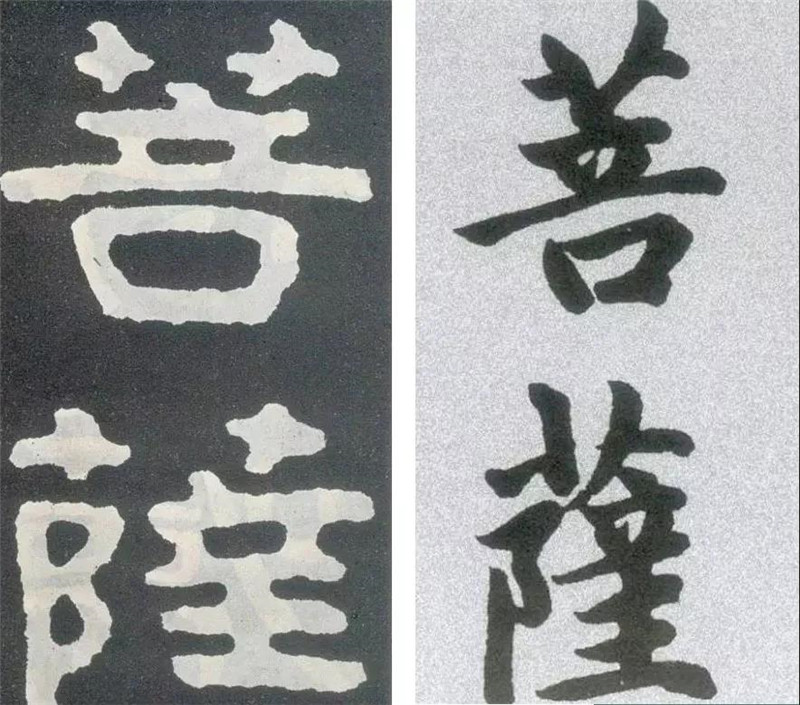 菩薩
菩薩